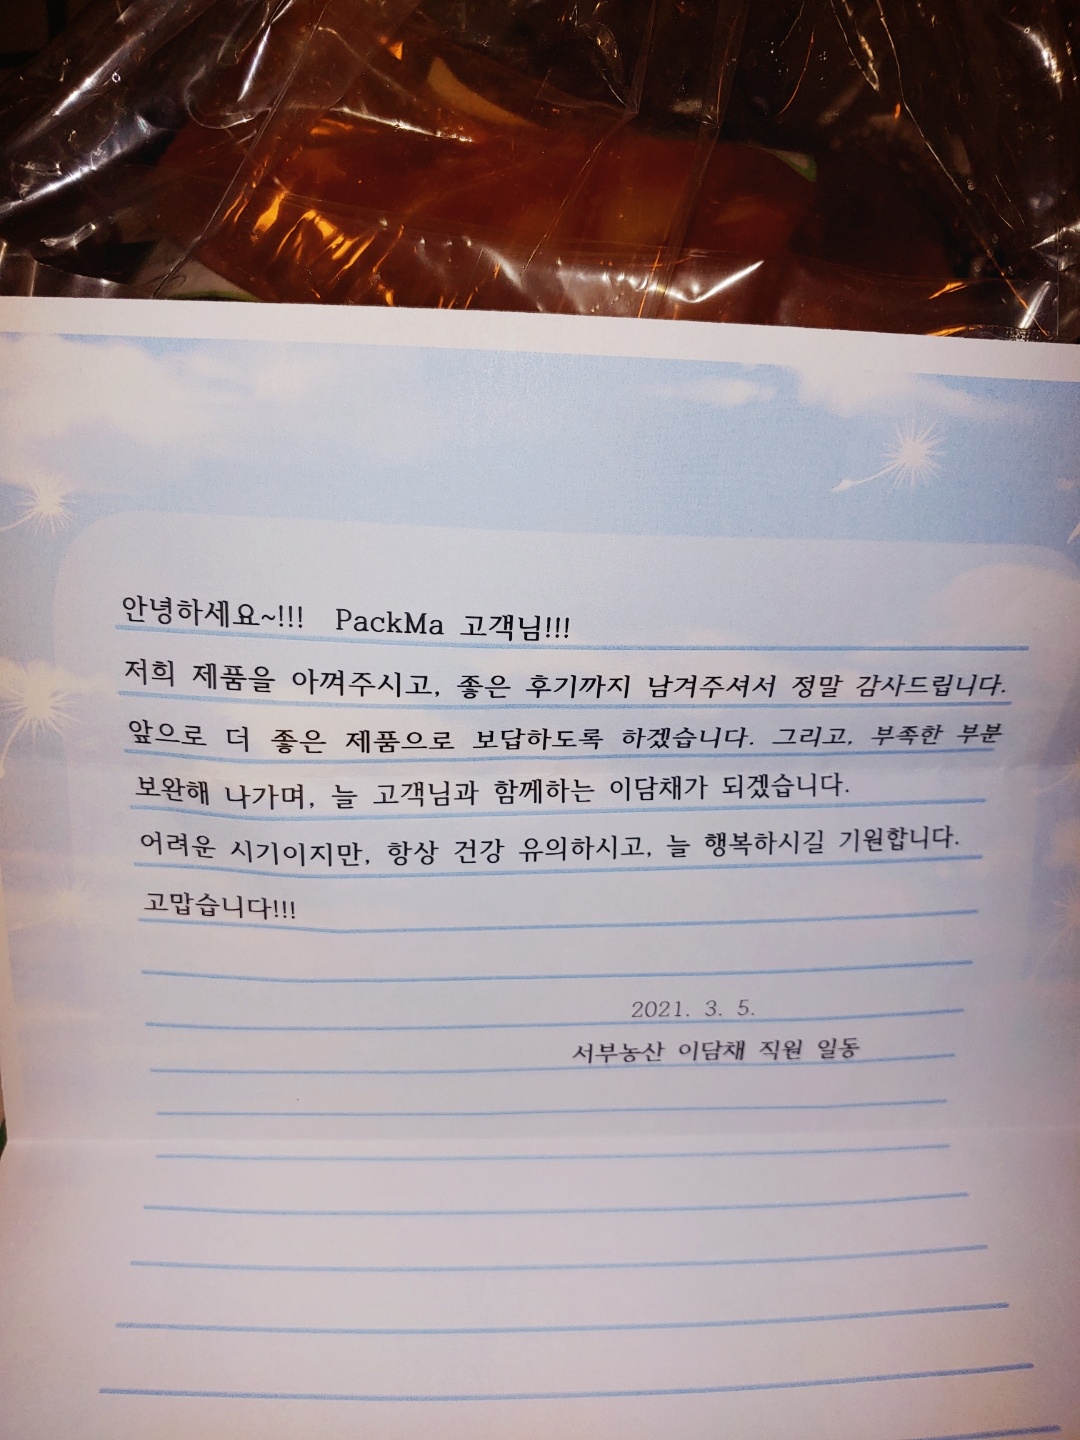 안녕하세요~!!! PackMa 고객님!!!
저희 제품을 아껴주시고, 좋은 후기까지 남겨주셔서 정말 감사드립니다.
앞으로 더 좋은 제품으로 보답하도록 하겠습니다. 그리고, 부족한 부분
보완해 나가며, 늘 고객님과 함께하는 이담채가 되겠습니다.
어려운 시기이지만, 항상 건강 유의하시고, 늘 행복하시길 기원합니다.
고맙습니다!!!
2021. 3. 5.
서부농산 이담채 직원 일동